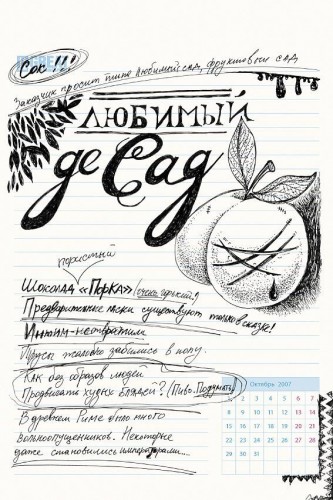 Сок!!!
Заказчик просит типа Любимый сад, фруктовый сад
ЛЮБИМЫЙ
де Сад
пористый
Шоколад «ПОРКА» (очень горький!)
Предварительные ласки существуют только в сказке!
Трусы жалобно забились в попу.
Как без образов людей
Продвигать худии блядей? (Пиво. Подумать)
В древнем Риме было много
Вольноотпущенников. Некоторые
даже становились императорами...
Октябрь 2007
1 2 3 4 5 6 7
8 9 10 11 12 13 14
15 16 17 18 19 20 21
22 23 24 25 26 27 28
29 30 31